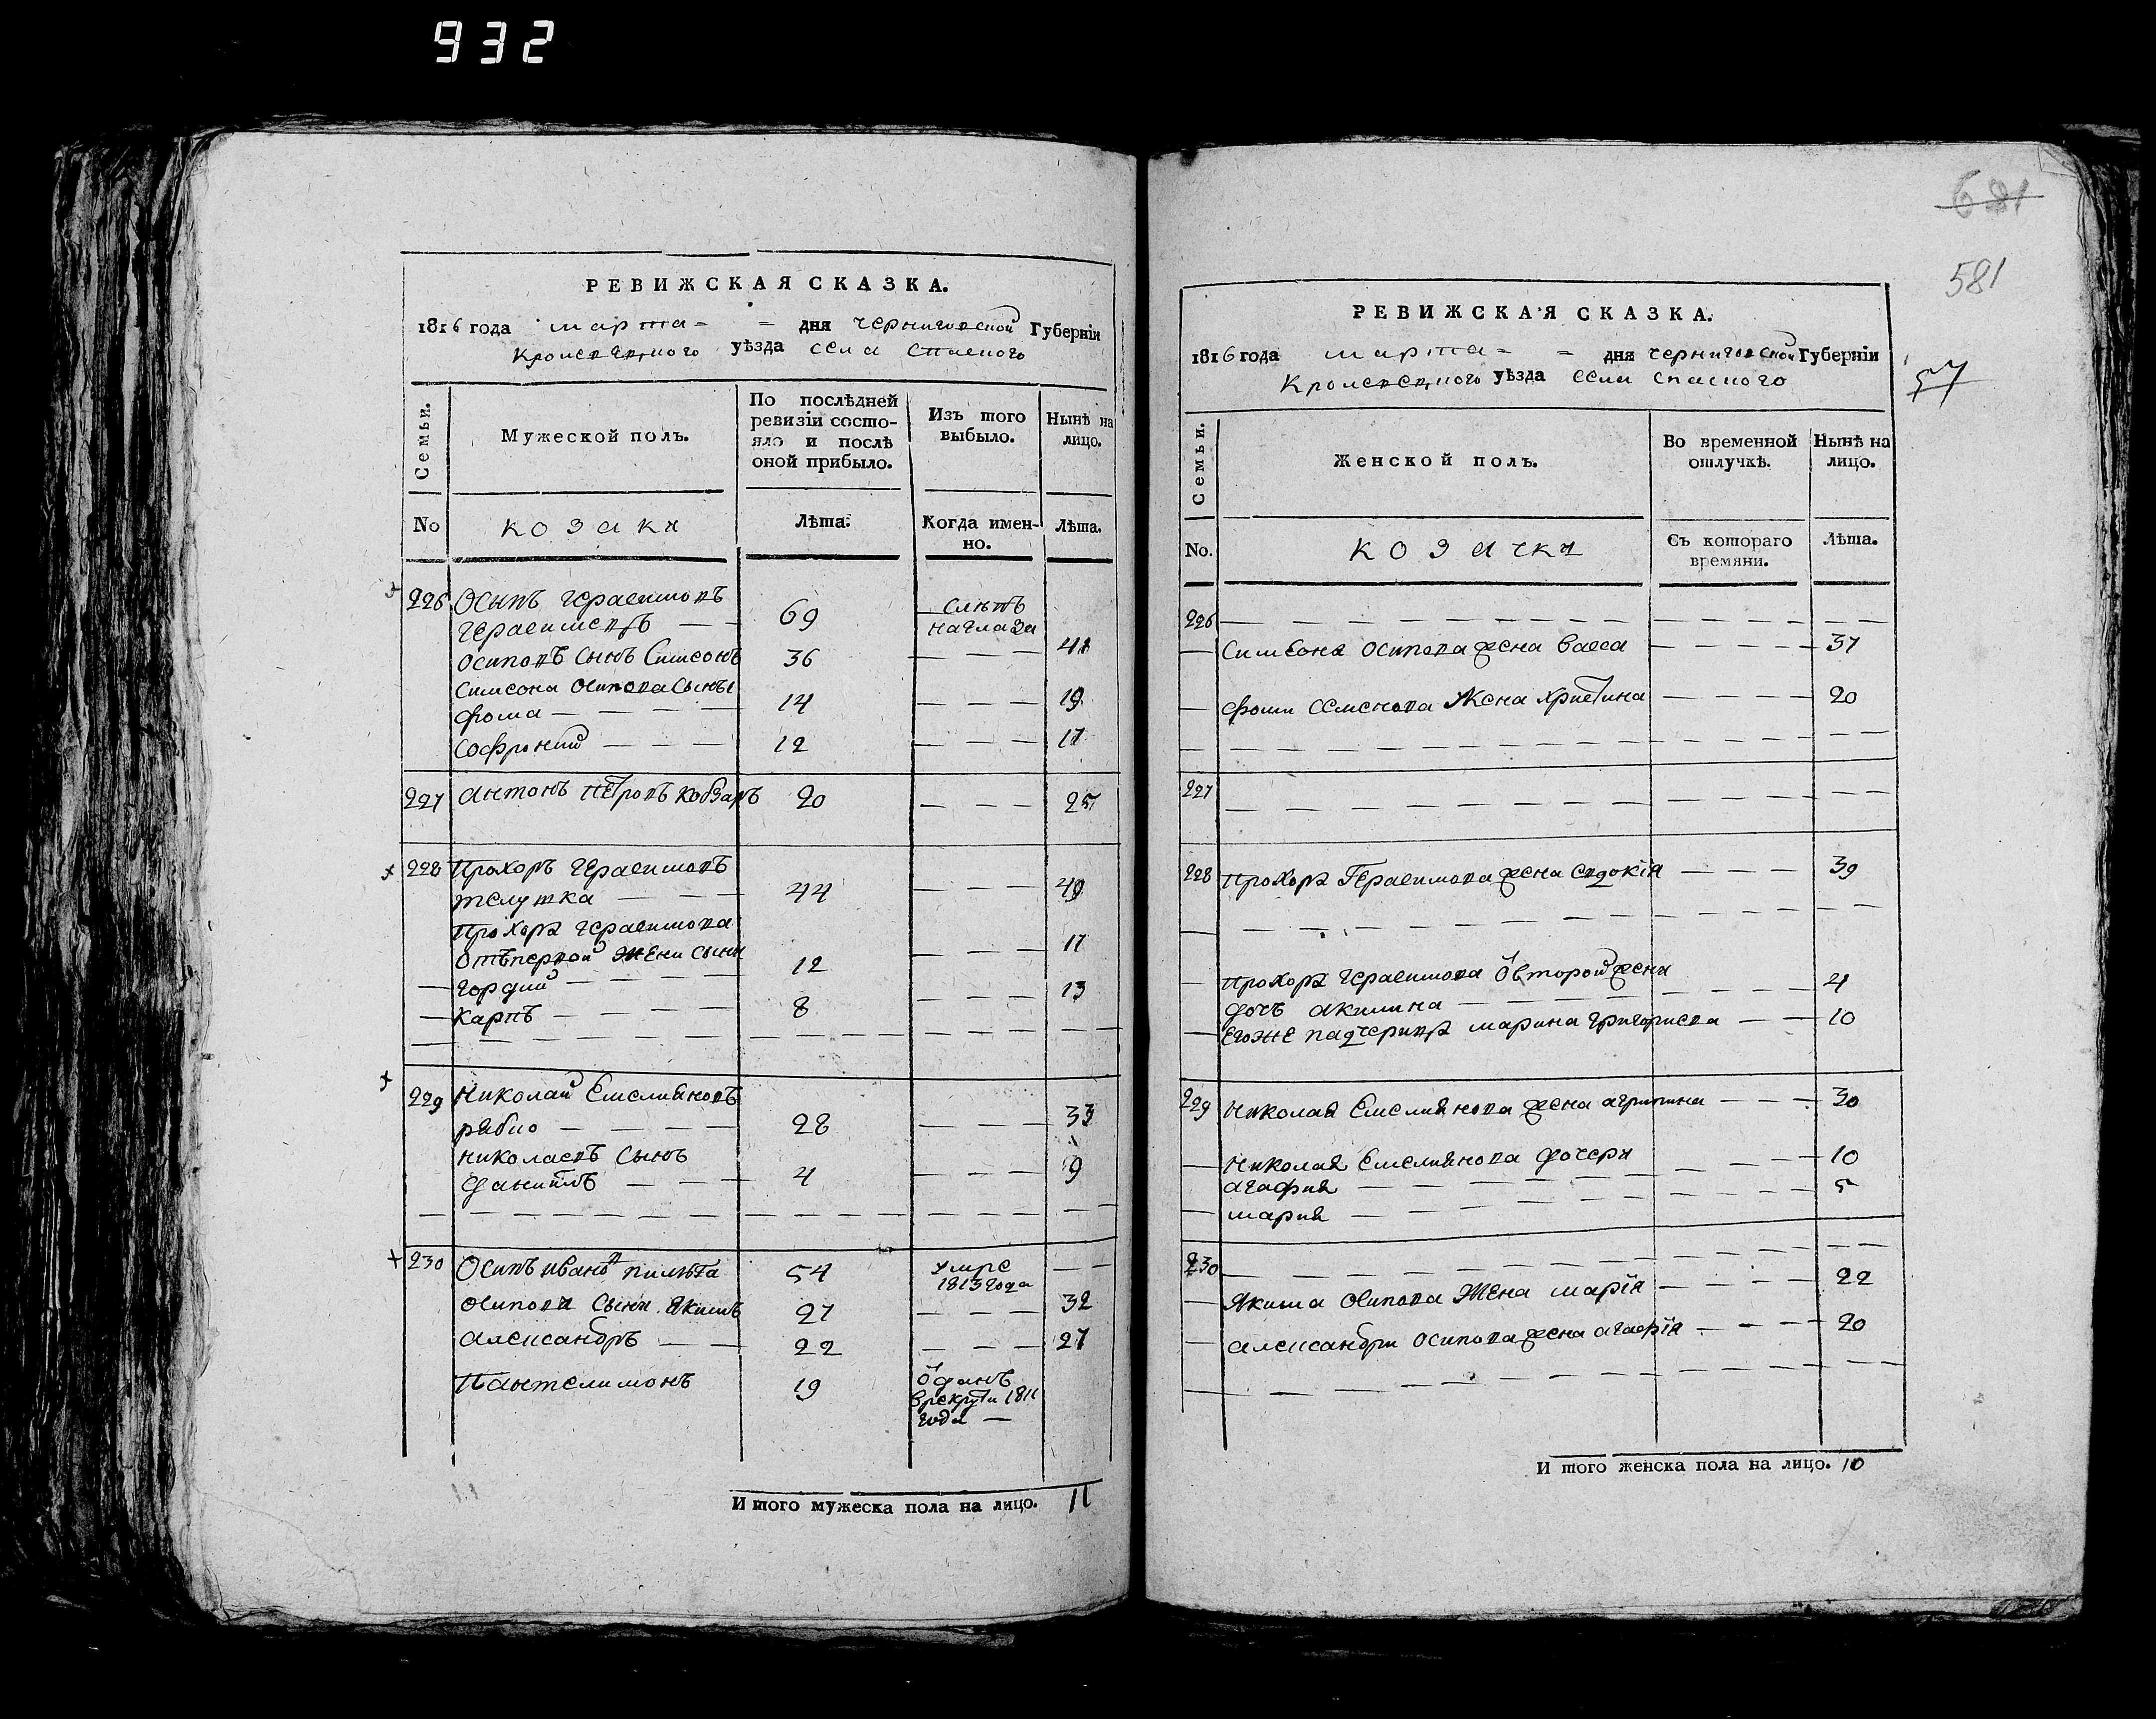 932
РЕВИЖСКАЯ СКАЗКА.
1816 года марта = = дня черниговской Губерніи
Кролевецкого уѣзда села спаского
Семьи.
Мужеской полъ.
По послѣдней ревизіи состо-
яло и послѣ оной прибыло.
Изъ того выбыло.
Нынѣ на лицо.
No
козаки
Лѣта.
Когда имен-
но.
Лѣта.
226 Осипъ герасимовъ
69 слѣпъ
на глаза
Осиповъ сынъ Симеонъ 36 — — — 41
Симеона Осипова сыны
фома — — — 14 — — — 19
Софроний — — — 12 — — — 17
227 антонъ петровъ кобзаръ 20 — — — 25
228 Прохоръ герасимовъ
телушка — — — 44 — — — 49
Прохора герасимова
отъ первой жены сыни
— гордий — — — 12 — — — 17
— карпъ — — — 8 — — — 13
229 Николай Емелияновъ
рябко — — — 28 — — — 33
николаевъ сынъ
данило — — — 4 — — — 9
230 Осипъ ивановъ 54 умре
1813 года — —
Осипови сыни якимъ 27 — — — 32
александръ — — 22 — — — 27
Пантелимонъ 19 ѿданъ
в рекруты 1811
года —
И того мужеска пола на лицо. 11
621
581
57
РЕВИЖСКАЯ СКАЗКА.
1816 года марта = = дня черниговской Губерніи
Кролевецкого уѣзда села спаского
Семьи.
Женской полъ.
Во временной
отлучкѣ.
Нынѣ на
лицо.
No.
козачки
Съ котораго
времяни.
Лѣта.
226 — — — — — —
— Симеона Осипова жена васса — — — 37
— фоми семенова жена христина — — — 20
227 — — — — — —
228 Прохора Герасимова жена евдокія — — — 39
— Прохора герасимова ѿ второй жени
дочь акилина — — — 4
— егоже падчерица марина григориева — — 10
229 Николая Емелиянова жена агрипина — — — 30
— Николая Емелиянова дочери
агафия — — — 10
— мария — — — 5
230 — — — — — —
— Якима Осипова жена марія — — — 22
— александри осипова жена агафія — — — 20
И того женска пола на лицо. 10